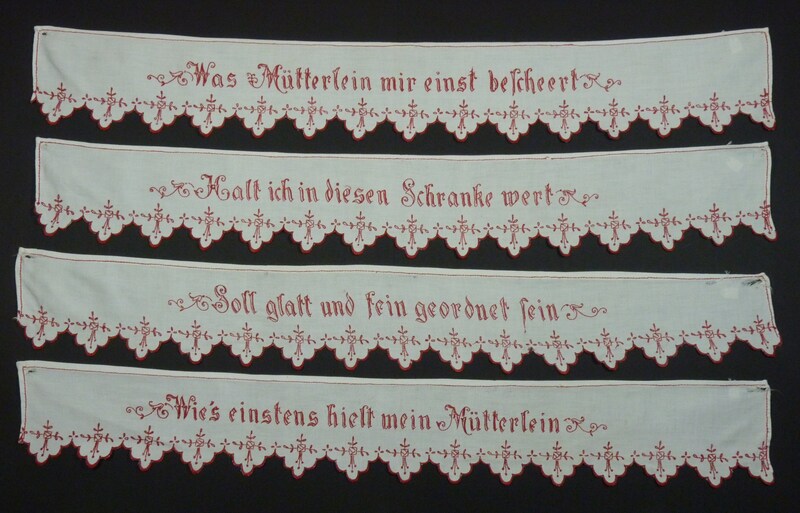 Was Mütterlein mir einst bescheert
Halt ich in diesen Schranke wert
Soll glatt und fein geordnet sein
Wie's einstens hielt mein Mütterlein